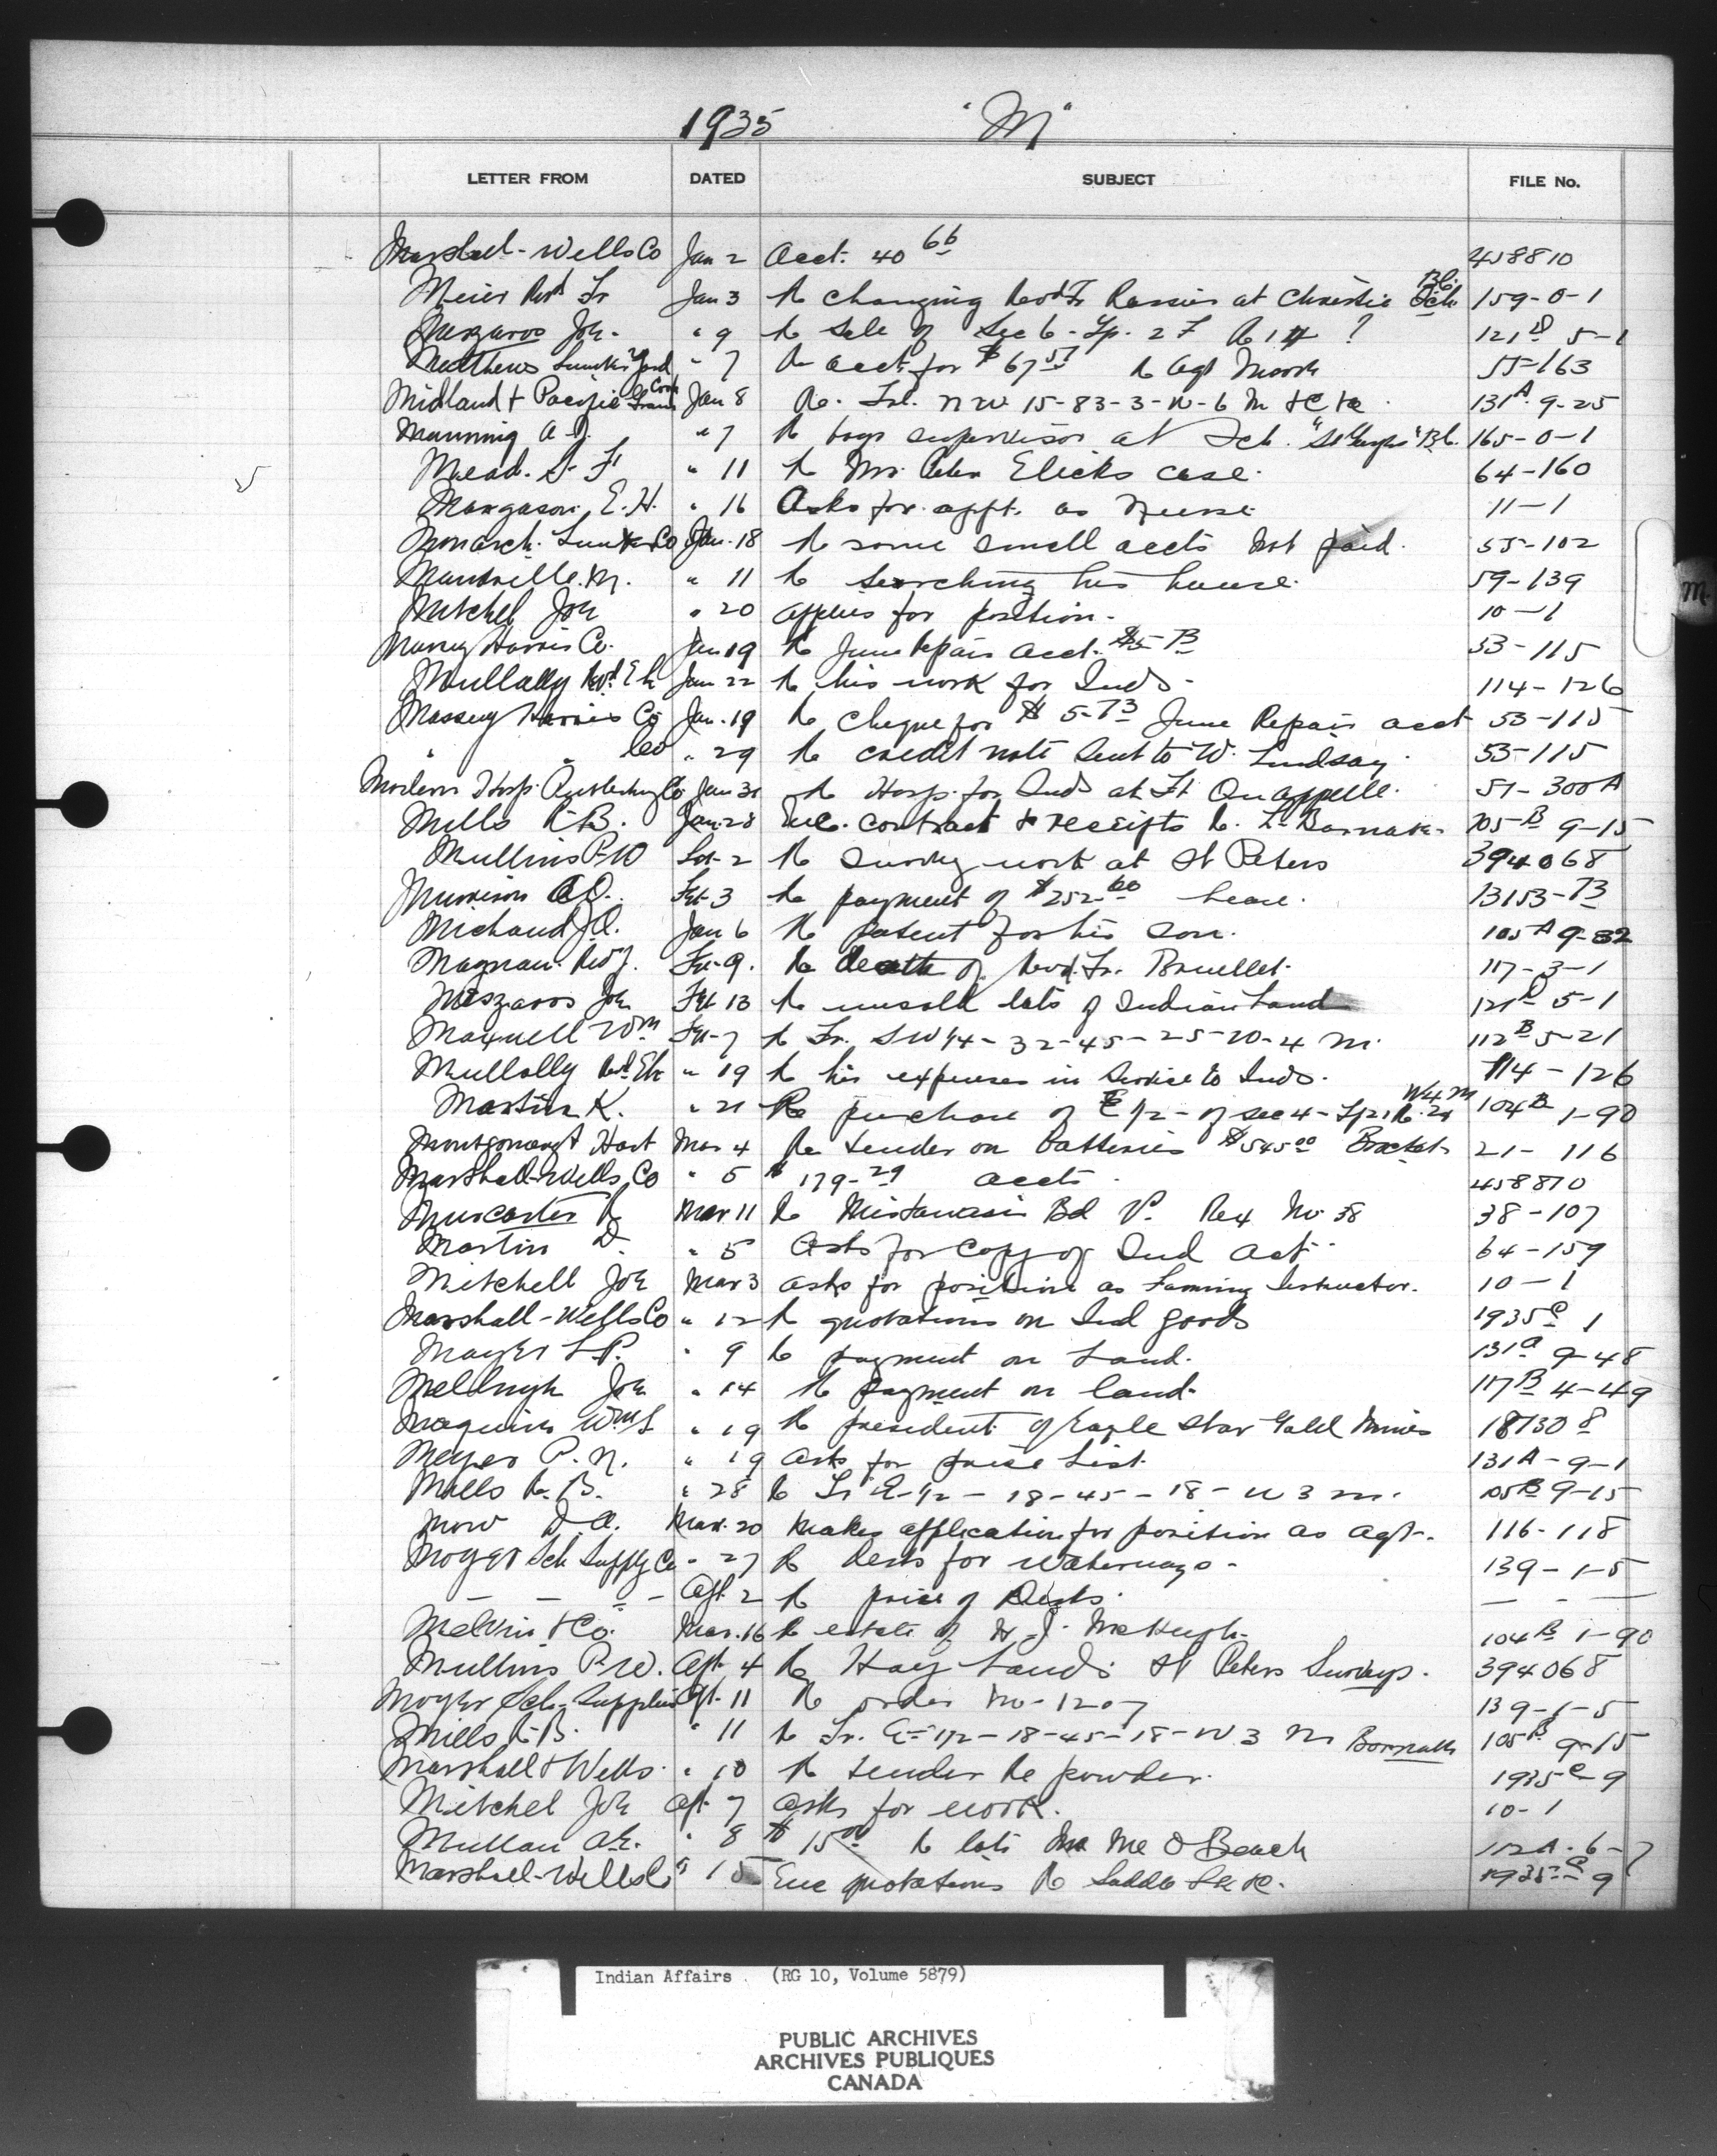 1935 "M"
LETTER FROM DATED SUBJECT FILE No.
Marshall-Wells Co Jan 2 Acct. 40 66 458810
Meier Revd Fr Jan 3 Re changing Revd Fr at Christie Sch B.C. 159-0-1
Meszaros Joh. " 9 Re Sale of Sec 6-Tp. 27 R 1 ? 121 D 5-1
Matthews Lumber Yard " 7 Re acct for $67 57 Re Agt Moore 55-163
Midland & Pacific Grain Corp Jan 8 Re. Trl. NW 15-83-3-W-6 M 131 A. 9-25
Manning A.J. " 7 Re boys supervisor at Sch. "St Georges" B.C. 165-0-1
Mead. S. F " 11 Re Mrs. Elicks case. 64-160
Margason. E.H. " 16 Asks for appt. as Nurse 11-1
Monarch. Lumber Co Jan. 18 Re some small accts not paid. 55-102
Mandville. M. " 11 Re searching his house. 59-139
Mitchel Joh " 20 applies for position. 10-1
Massey Harris Co. Jan 19 Re June Repair acct. $5-73 53-115
Mullally Revd E h Jan 22 Re his work for Inds- 114-126
Massey Harris Co Jan. 19 Re Cheque for $5-73 June Repair acct 53-115
" " Co " 29 Re credit note sent to W. Lindsay. 53-115
Modern Hosp. Publishing Co Jan 31 Re Hosp. for Inds at Ft Qu'appelle. 51-300 A
Mills R.B. Jan-28 Enc. contract & receipts Re. L- 105 B 9-15
Mullins P-W Feb-2 Re Survey work at St Peters 394068
Murison A.O. Feb-3 Re payment of $252 60 lease. 13153-73
Michaud J.O. Jan 6 Re patent for his son. 105 A 9-32
Magnan. Rev J. Feb-9. Re death of Revd. Fr. Brouillet. 117-3-1
Meszaros Joh Feb 13 Re unsold lots of Indian Land 121 D 5-1
Maxwell Wm Feb-7 Re Fr. SW 1/4-32-45-25-W-4 M. 112 B 5-21
Mullally Revd Eh " 19 Re his expenses in Service to Inds. 114-126
Martin K. " 21 Re purchase of E 1/2- of sec 4- Tp 21 R. 24 W 4 M 104 B 1-90
Montgomery & Hart Mar 4 Re Tender on Batteries $545 00 21-116
Marshall-Wells Co " 5 $179-29 accts. 458810
Muncaster R Mar 11 Re Mistawasis Bd V. Req No. 38 38-107
Martin D. " 5 Asks for Copy of Ind Act. 64-159
Mitchell Joh Mar 3 asks for position as Farming Instructor. 10-1
Marshall-Wells Co " 12 Re quotations on Ind goods 1935 C 1
Mayer L.P. " 9 Re payment on Land. 131 A 9-48
Joh " 14 Re payment on land. 117 B 4-49
Maguire Wm S " 19 Re president of Eagle Star Gold Mines 18730 8
Meyer P.N. " 19 asks for price List. 131 A-9-1
Mills R.B. " 28 Re Fr E-1/2-18-45-18-W 3 M. 105 B 9-15
Mow D.A. Mar. 20 Makes application for position as Agt-. 116-118
Moyer Sch Supply Co " 27 Re desks for Waterways- 139-1-5
- - " - Apl. 2 Re price of Desks. - - -
Melvin & Co. Mar. 16 Re estate of H.J. McHugh- 104 B 1-90
Mullins P-W. Apl. 4 Re Hay Lands St Peters Surveys. 394068
Moyer Sch-Supplies Apl. 11 Re order No-1207 139-1-5
Mills R.B. " 11 Re Fr. E-1/2-18-45-18-W 3 M 105 B 9-15
Marshall & Wells. " 10 Re Tender Re powder. 1935 C-9
Mitchel Joh Apl. 7 asks for work. 10-1
Mullan A.E. " 8 $15 00 Re lots Beach 112 A. 6-7
Marshall-Wells Co " 15 Enc quotations Re 1935-C 9
M.
Indian Affairs . (RG 10, Volume 5879)
PUBLIC ARCHIVES
ARCHIVES PUBLIQUES
CANADA